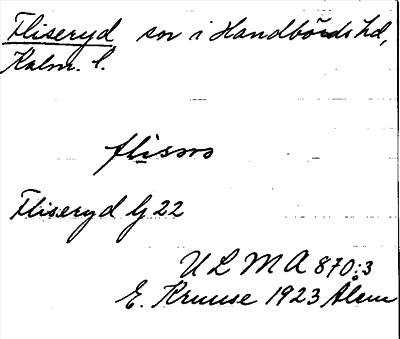 Fliseryd sn i Handbörds hd,
Kalm. l.
flisero
Fliseryd lj 22
ULMA 870:3
E. Kruuse 1923 Ålem